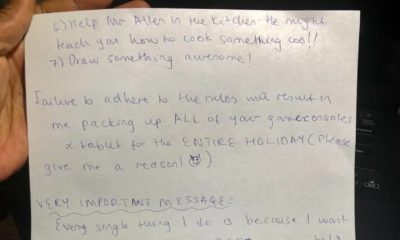 6) Help Mr Allen in the kitchen. He might
teach you how to cook something cool!!
7) Draw something awesome!
Failure to adhere to the rules will result in
me packing up ALL of your game consoles
& tablet for the ENTIRE HOLIDAY (Please
give me a reason! 😈)
VERY IMPORTANT MESSAGE:
Every single thing I do is because I want